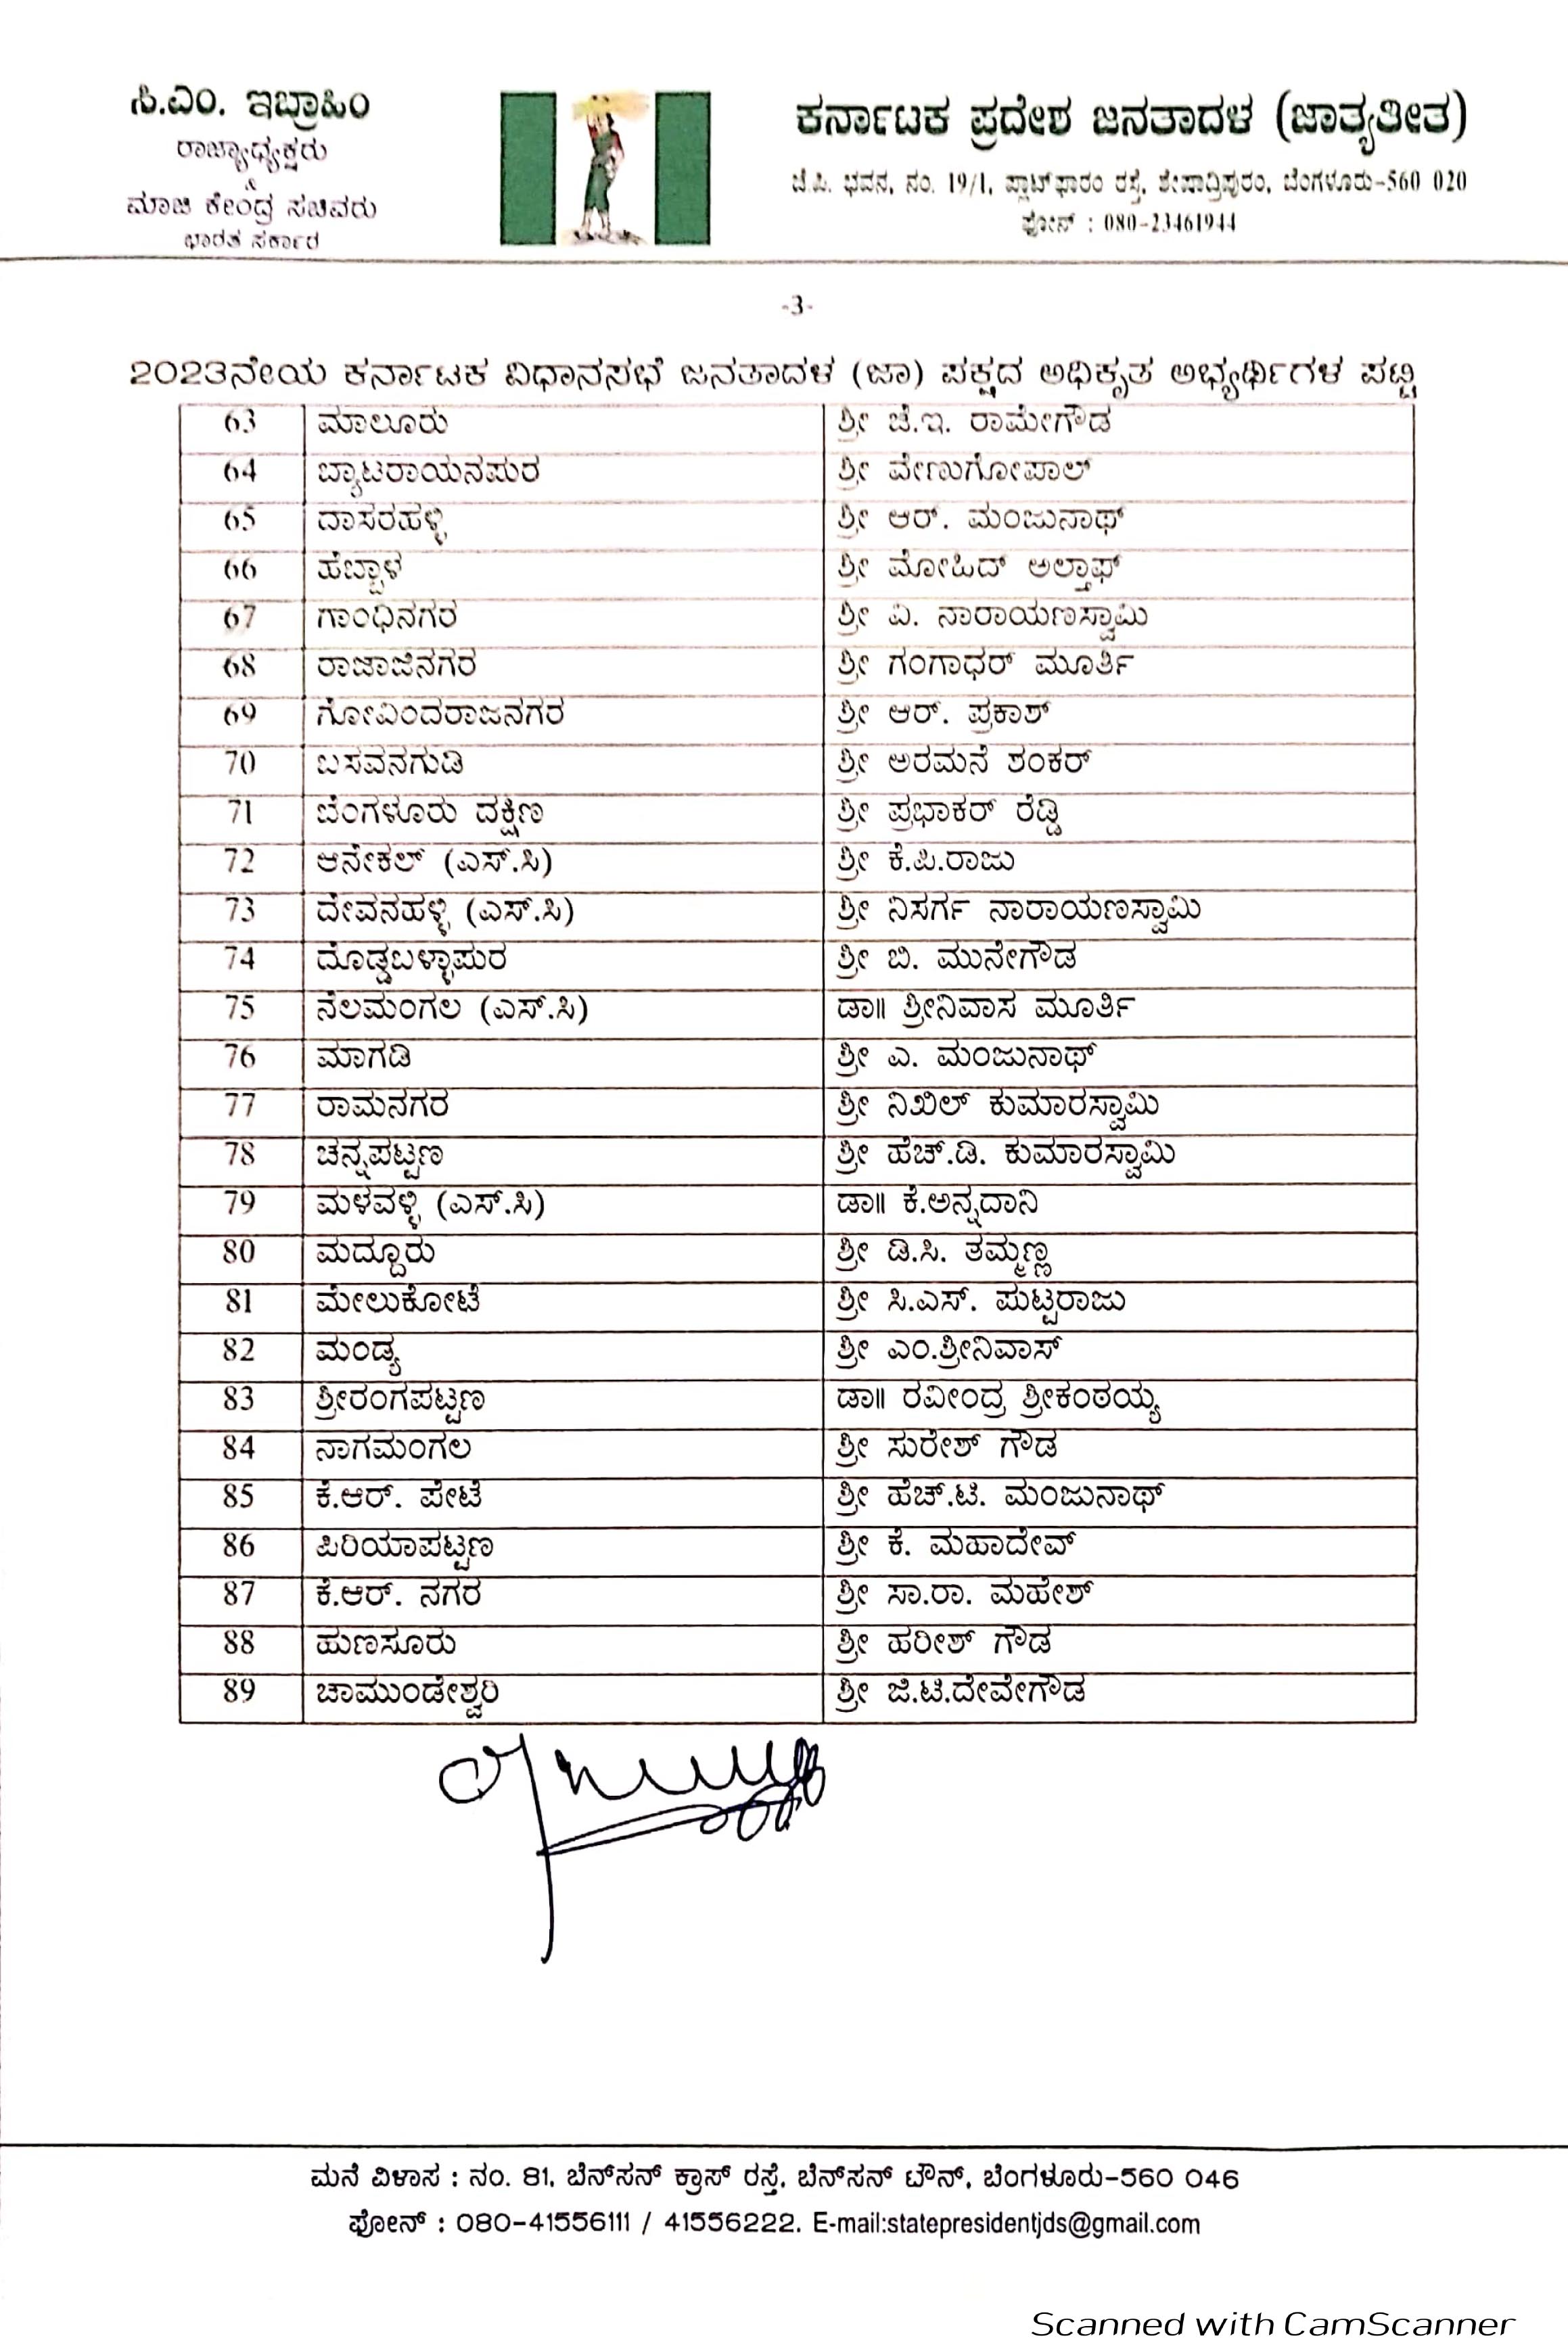 ಸಿ.ಎಂ. ಇಬ್ರಾಹಿಂ
ರಾಜ್ಯಾಧ್ಯಕ್ಷರು
&
ಮಾಜಿ ಕೇಂದ್ರ ಸಚಿವರು
ಭಾರತ ಸರ್ಕಾರ
ಕರ್ನಾಟಕ ಪ್ರದೇಶ ಜನತಾದಳ (ಜಾತ್ಯತೀತ)
ಜೆ.ಪಿ. ಭವನ, ನಂ. 19/1, ಪ್ಲಾಟ್‌ಫಾರಂ ರಸ್ತೆ, ಶೇಷಾದ್ರಿಪುರಂ, ಬೆಂಗಳೂರು-560 020
ಫೋನ್ : 080-23461944
-3-
2023ನೇಯ ಕರ್ನಾಟಕ ವಿಧಾನಸಭೆ ಜನತಾದಳ (ಜಾ) ಪಕ್ಷದ ಅಧಿಕೃತ ಅಭ್ಯರ್ಥಿಗಳ ಪಟ್ಟಿ
63 ಮಾಲೂರು ಶ್ರೀ ಜೆ.ಇ. ರಾಮೇಗೌಡ
64 ಬ್ಯಾಟರಾಯನಪುರ ಶ್ರೀ ವೇಣುಗೋಪಾಲ್
65 ದಾಸರಹಳ್ಳಿ ಶ್ರೀ ಆರ್. ಮಂಜುನಾಥ್
66 ಹೆಬ್ಬಾಳ ಶ್ರೀ ಮೋಹಿದ್ ಅಲ್ತಾಫ್
67 ಗಾಂಧಿನಗರ ಶ್ರೀ ವಿ. ನಾರಾಯಣಸ್ವಾಮಿ
68 ರಾಜಾಜಿನಗರ ಶ್ರೀ ಗಂಗಾಧರ್ ಮೂರ್ತಿ
69 ಗೋವಿಂದರಾಜನಗರ ಶ್ರೀ ಆರ್. ಪ್ರಕಾಶ್
70 ಬಸವನಗುಡಿ ಶ್ರೀ ಅರಮನೆ ಶಂಕರ್
71 ಬೆಂಗಳೂರು ದಕ್ಷಿಣ ಶ್ರೀ ಪ್ರಭಾಕರ್ ರೆಡ್ಡಿ
72 ಆನೇಕಲ್ (ಎಸ್.ಸಿ) ಶ್ರೀ ಕೆ.ಪಿ.ರಾಜು
73 ದೇವನಹಳ್ಳಿ (ಎಸ್.ಸಿ) ಶ್ರೀ ನಿಸರ್ಗ ನಾರಾಯಣಸ್ವಾಮಿ
74 ದೊಡ್ಡಬಳ್ಳಾಪುರ ಶ್ರೀ ಬಿ. ಮುನೇಗೌಡ
75 ನೆಲಮಂಗಲ (ಎಸ್.ಸಿ) ಡಾ॥ ಶ್ರೀನಿವಾಸ ಮೂರ್ತಿ
76 ಮಾಗಡಿ ಶ್ರೀ ಎ. ಮಂಜುನಾಥ್
77 ರಾಮನಗರ ಶ್ರೀ ನಿಖಿಲ್ ಕುಮಾರಸ್ವಾಮಿ
78 ಚನ್ನಪಟ್ಟಣ ಶ್ರೀ ಹೆಚ್.ಡಿ. ಕುಮಾರಸ್ವಾಮಿ
79 ಮಳವಳ್ಳಿ (ಎಸ್.ಸಿ) ಡಾ॥ ಕೆ.ಅನ್ನದಾನಿ
80 ಮದ್ದೂರು ಶ್ರೀ ಡಿ.ಸಿ. ತಮ್ಮಣ್ಣ
81 ಮೇಲುಕೋಟೆ ಶ್ರೀ ಸಿ.ಎಸ್. ಪುಟ್ಟರಾಜು
82 ಮಂಡ್ಯ ಶ್ರೀ ಎಂ.ಶ್ರೀನಿವಾಸ್
83 ಶ್ರೀರಂಗಪಟ್ಟಣ ಡಾ॥ ರವೀಂದ್ರ ಶ್ರೀಕಂಠಯ್ಯ
84 ನಾಗಮಂಗಲ ಶ್ರೀ ಸುರೇಶ್ ಗೌಡ
85 ಕೆ.ಆರ್. ಪೇಟೆ ಶ್ರೀ ಹೆಚ್.ಟಿ. ಮಂಜುನಾಥ್
86 ಪಿರಿಯಾಪಟ್ಟಣ ಶ್ರೀ ಕೆ. ಮಹಾದೇವ್
87 ಕೆ.ಆರ್. ನಗರ ಶ್ರೀ ಸಾ.ರಾ. ಮಹೇಶ್
88 ಹುಣಸೂರು ಶ್ರೀ ಹರೀಶ್ ಗೌಡ
89 ಚಾಮುಂಡೇಶ್ವರಿ ಶ್ರೀ ಜಿ.ಟಿ.ದೇವೇಗೌಡ
ಮನೆ ವಿಳಾಸ : ನಂ. 81, ಬೆನ್‌ಸನ್ ಕ್ರಾಸ್ ರಸ್ತೆ, ಬೆನ್‌ಸನ್ ಟೌನ್, ಬೆಂಗಳೂರು-560 046
ಫೋನ್ : 080-41556111 / 41556222. E-mail:statepresidentjds@gmail.com
Scanned with CamScanner